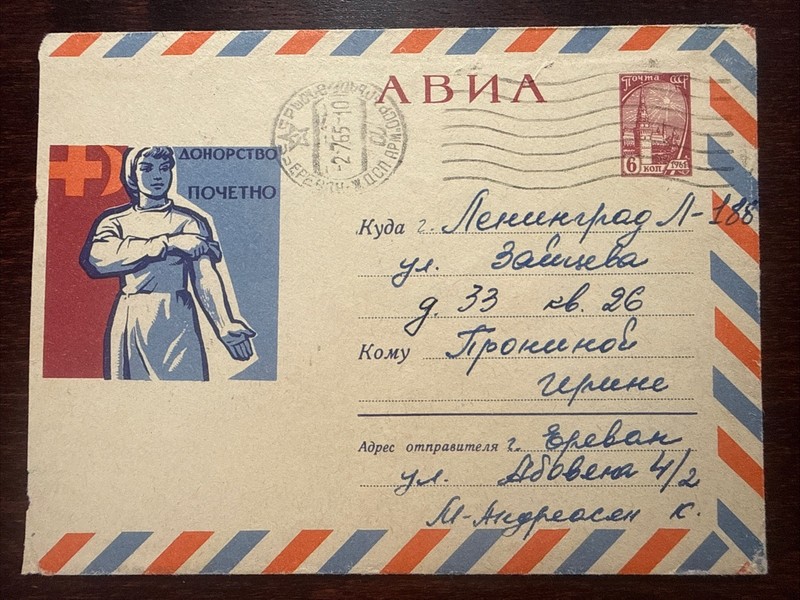 АВИА
Почта СССР
6 коп 1961
-2-765-10
ДОНОРСТВО
ПОЧЕТНО
Куда г. Ленинград Л-188
ул. Зайцева
д. 33 кв. 26
Кому Прониной
Ирине
Адрес отправителя г. Ереван
ул. Абовяна 4/2
М-Андреасян К.